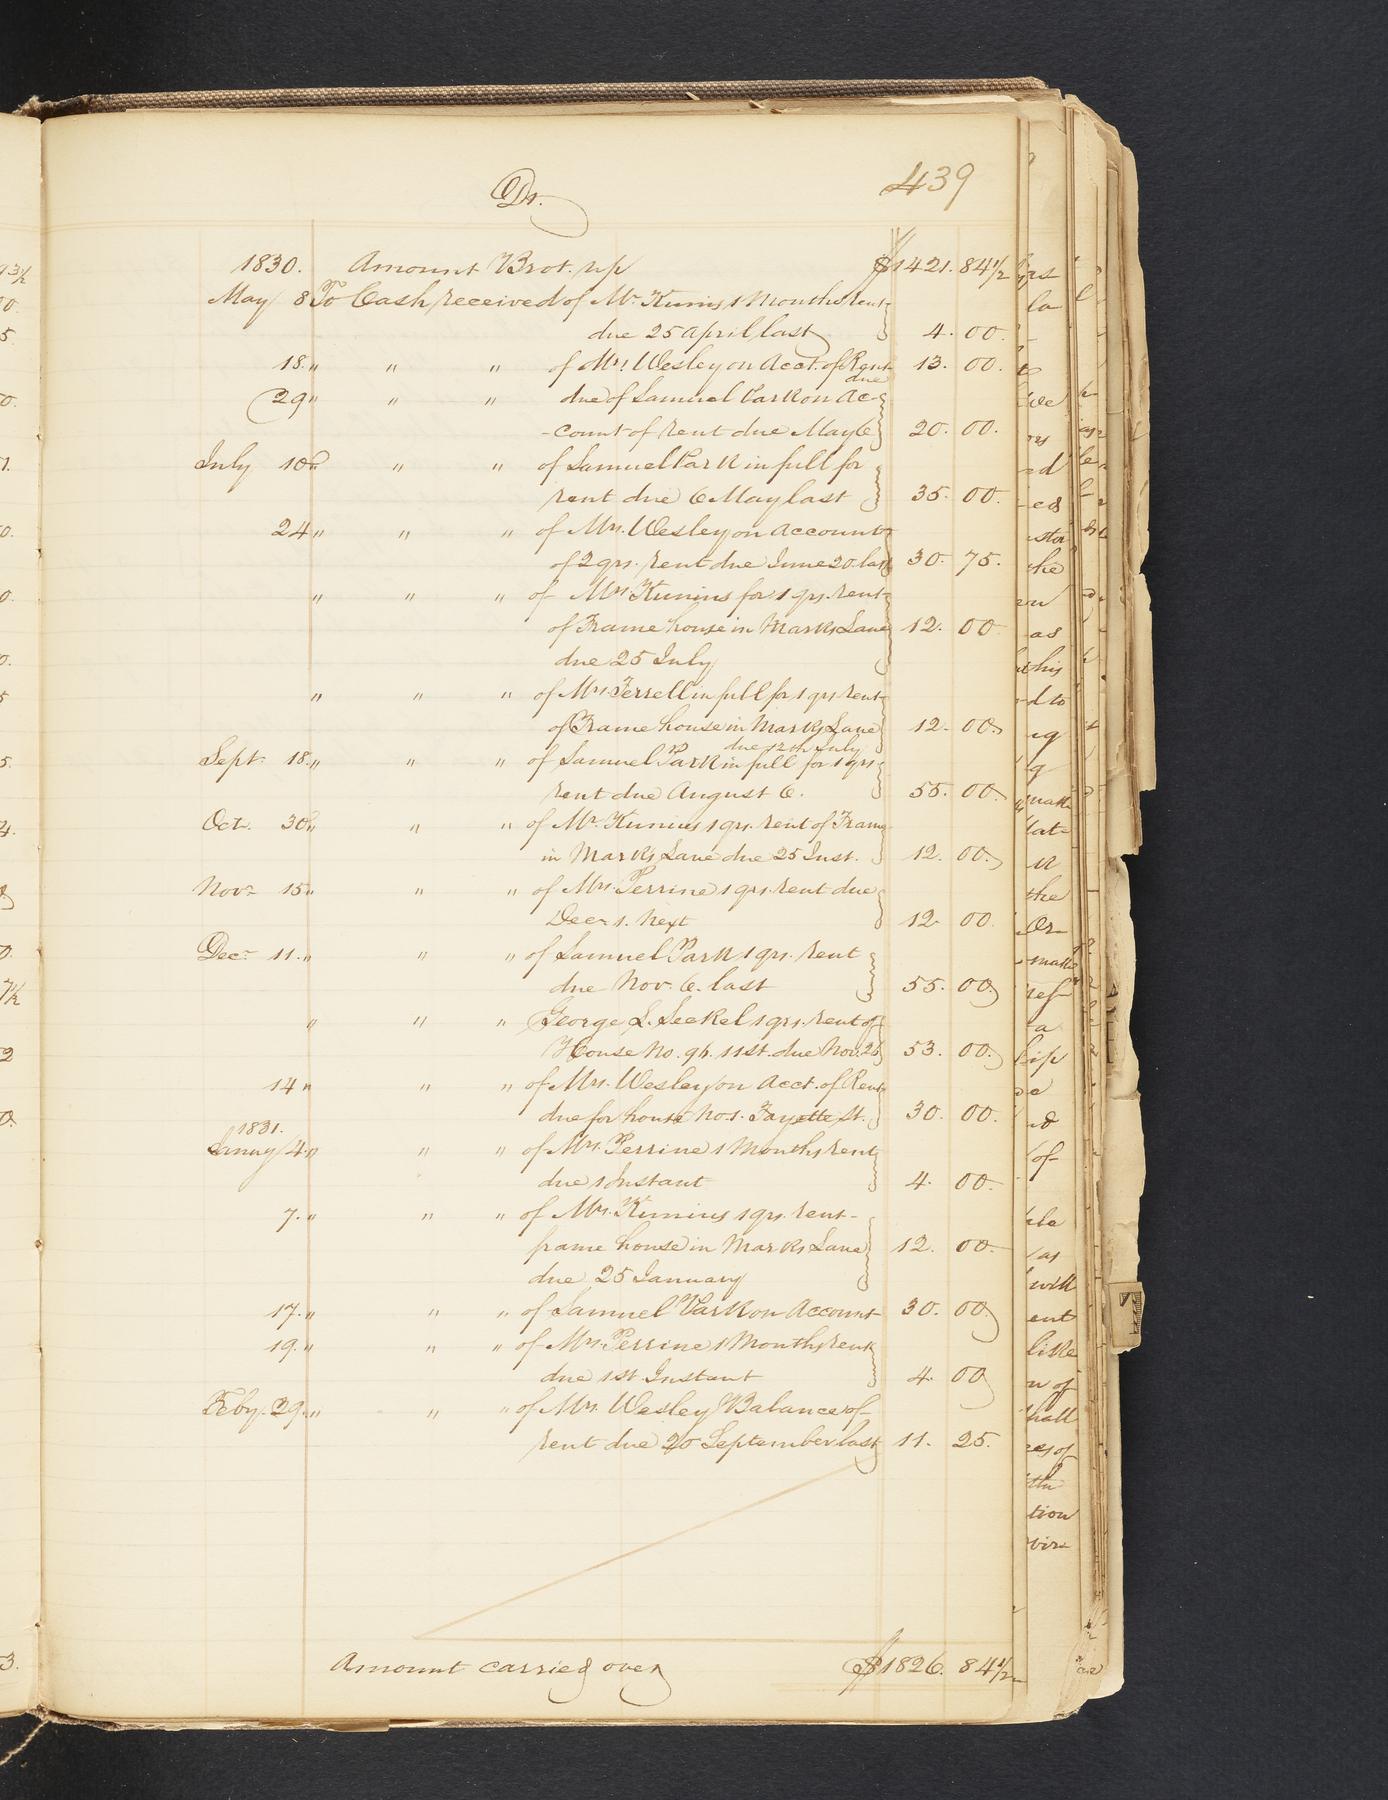 Dr.
439
1830. Amount Brot. up $1421. 84 1/2
May 8 To Cash received of Mr. Kunius 1 Months rent
due 25 April last 4. 00.
18. " " " of Mrs Wesley on Acct. of Rent 13. 00.
due
29 " " " due of Samuel Park on Ac-
-count of rent due May 6 20. 00.
July 10 " " " of Samuel Park in full for
rent due 6 May last 35. 00.
24 " " " of Mrs. Wesley on Account
of 2 qrs. rent due June 20. last 30. 75.
" " " of Mrs. Kunius for 1 qrs. rent
of Frame house in Marks Lane 12. 00
due 25 July
" " " of Mrs Ferrell in full for 1 qrs rent
of Frame house in Marks Lane 12. 00
due 12th July
Sept. 18. " " " of Samuel Park in full for 1 qrs
rent due August 6. 55. 00.
Oct. 30 " " " of Mr. Kunius 1 qrs. rent of Frame
in Marks Lane due 25 Inst. 12. 00.
Novr 15 " " " of Mrs. Perrine 1 qrs. rent due
Decr 1. Next 12. 00.
Decr 11. " " " of Samuel Park 1 qrs. rent
due Nov. 6. last 55. 00
" " " George L. Seckel 1 qrs. rent of
House No. 96. 11 St. due Nov. 26 53. 00.
14 " " " of Mrs. Wesley on Acct. of Rent
due for house No 1. Fayette St. 30. 00.
1831.
Januy 4. " " " of Mrs. Perrine 1 Months rent
due 1 Instant 4. 00.
7. " " " of Mrs. Kunius 1 qrs. rent
frame house in Marks Lane 12. 00.
due 25 January
17. " " " of Samuel Park on Account 30. 00
19. " " " of Mrs. Perrine 1 Months rent
due 1st Instant 4. 00
Feby. 29. " " " of Mrs. Wesley Balance of
rent due 20 September last 11. 25.
Amount carried over $1826. 84 1/2